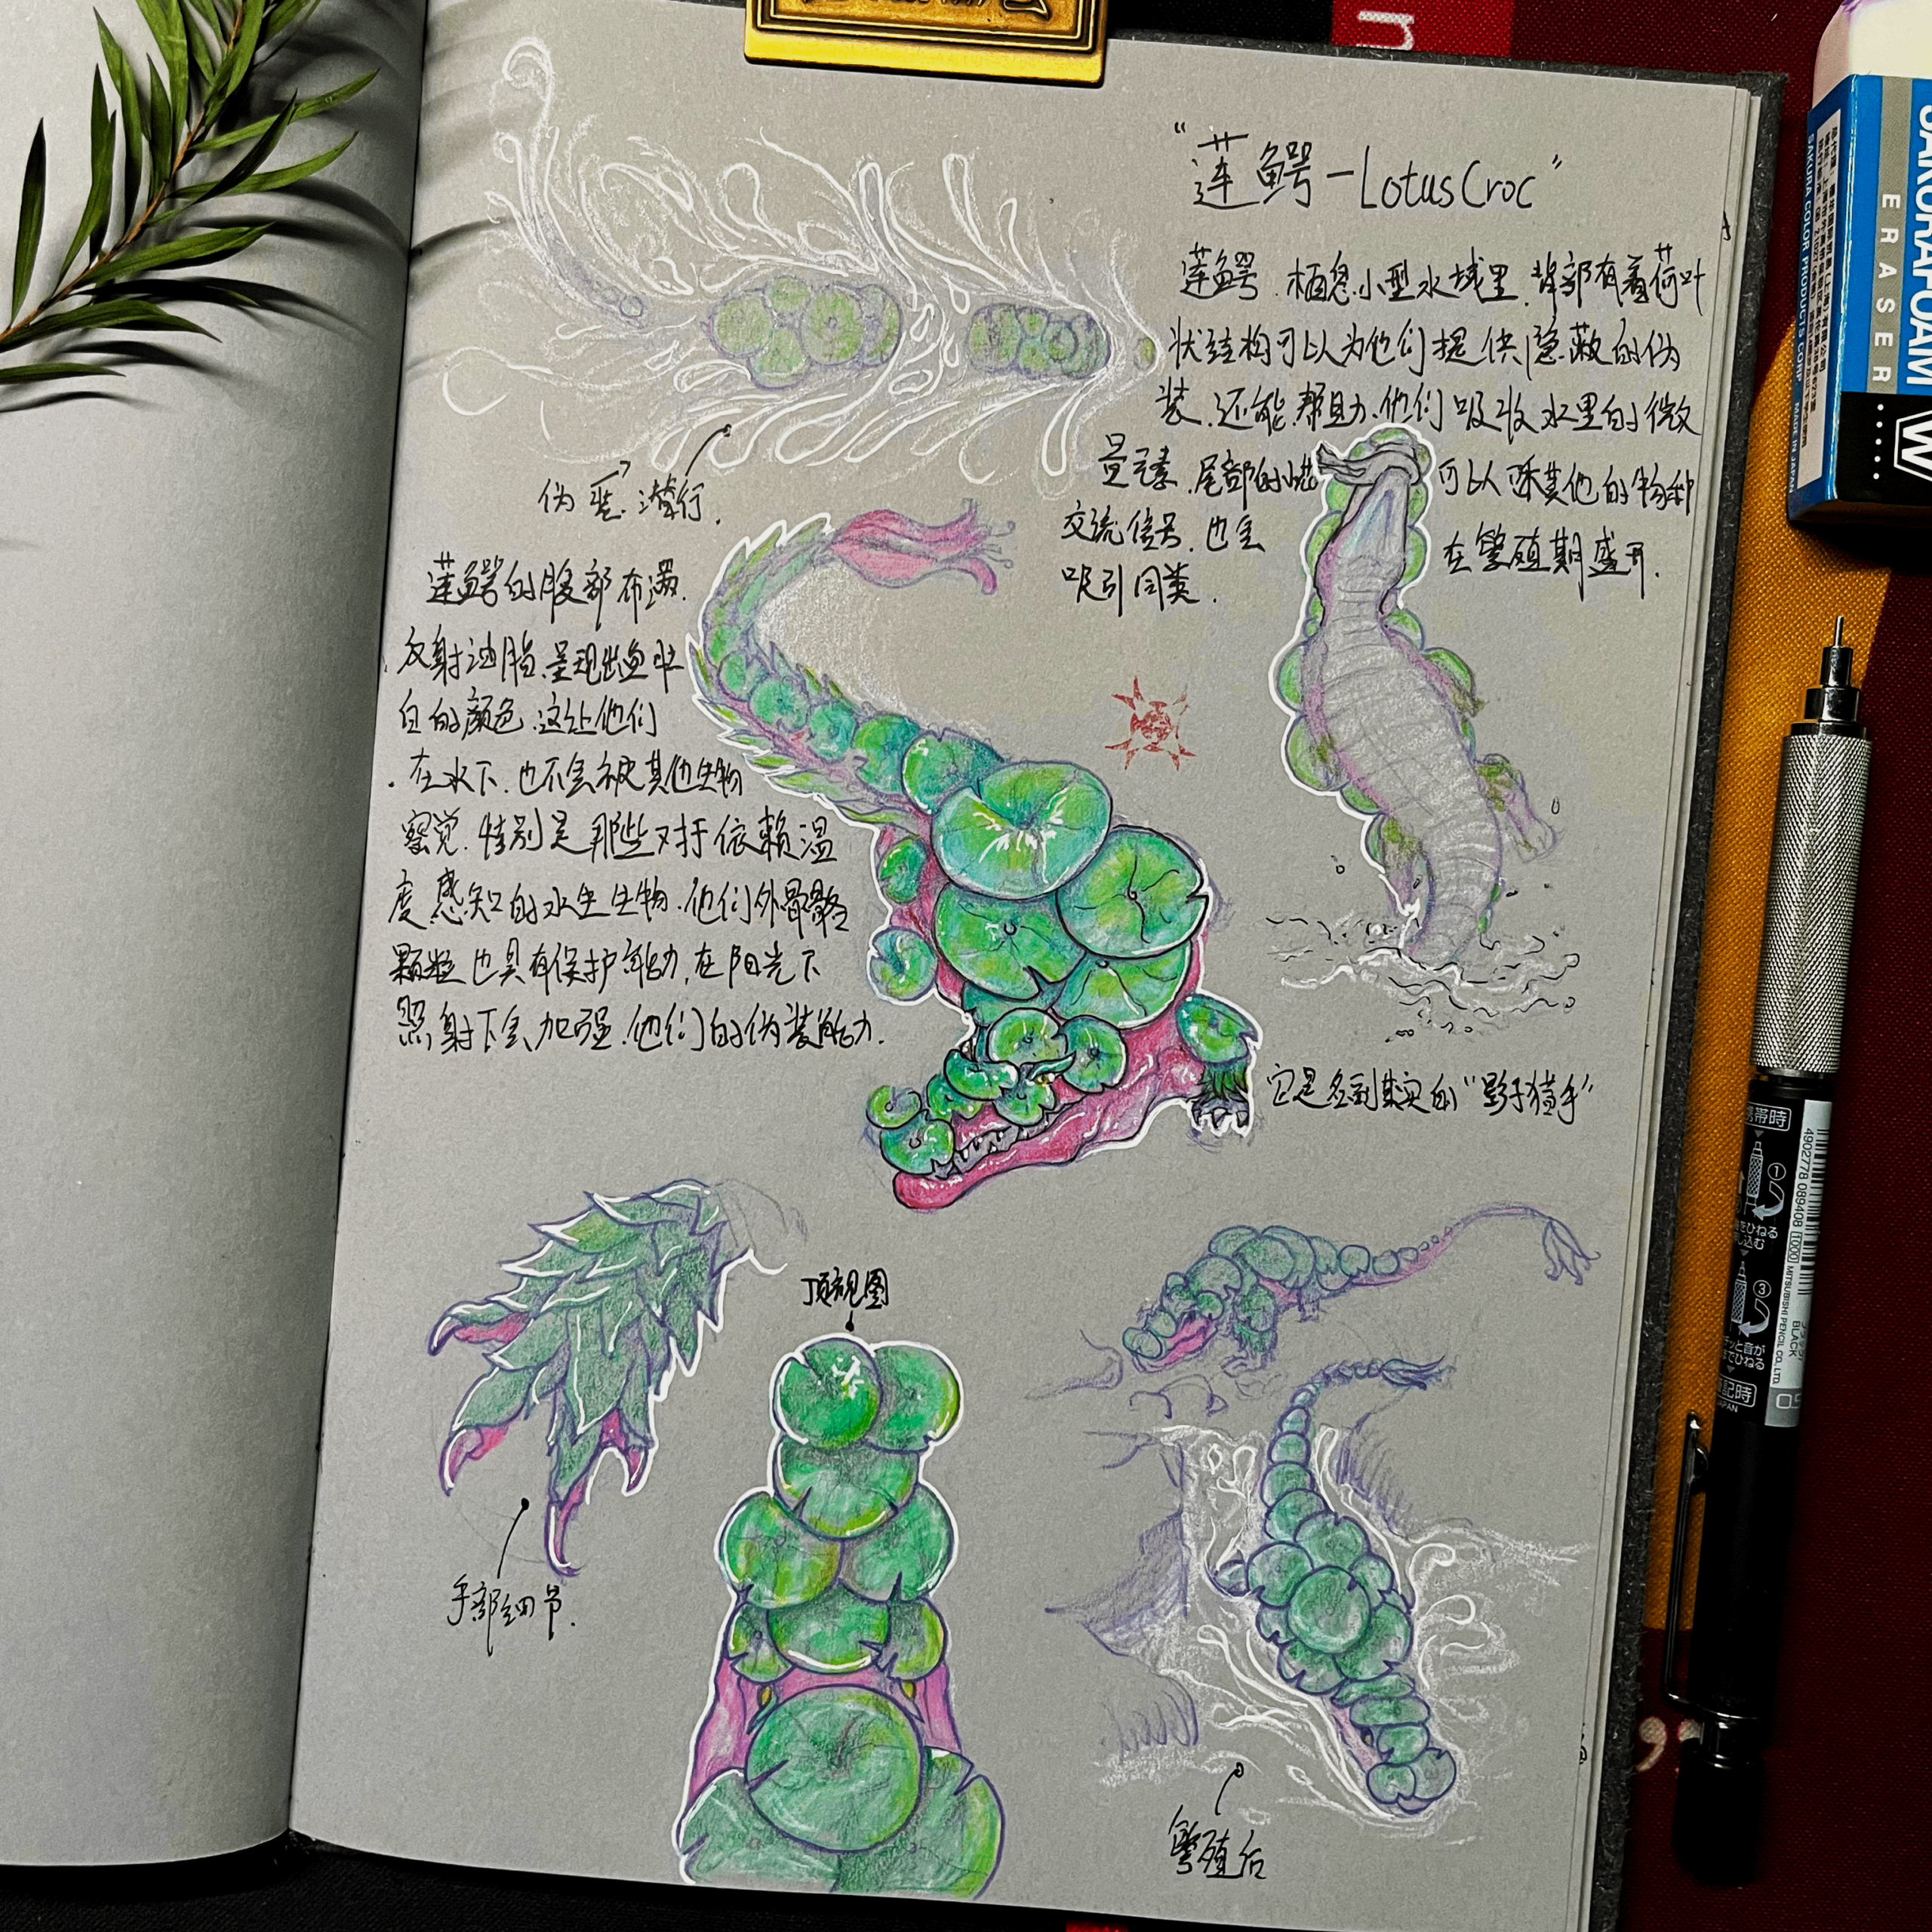 “莲鳄-LotusCroc”
莲鳄.栖息小型水域里.背部有着荷叶
状结构可以为他们提供隐蔽的伪
装.还能帮助他们吸收水里的微
量元素.尾部的 可以跟其他的物种
交流信号.也会 在繁殖期盛开.
吸引同类.
伪装潜行.
莲鳄的腹部布满.
反射油脂.呈现出鱼肚
白的颜色.这让他们
在水下.也不会被其他生物
察觉.特别是那些对于依赖温
度感知的水生生物.他们外骨骼
颗粒也具有保护能力,在阳光下
照射下会加强.他们的伪装能力.
它是名副其实的“影子猎手”
顶视图
手部细节.
繁殖后
SAKURAFOAM
ERASER
W
SAKURA COLOR PRODUCTS CORP.
MADE IN JAPAN
携帯時
①
③
筆記時
4902778 089408
MITSUBISHI PENCIL CO., LTD.
BLACK
JAPAN